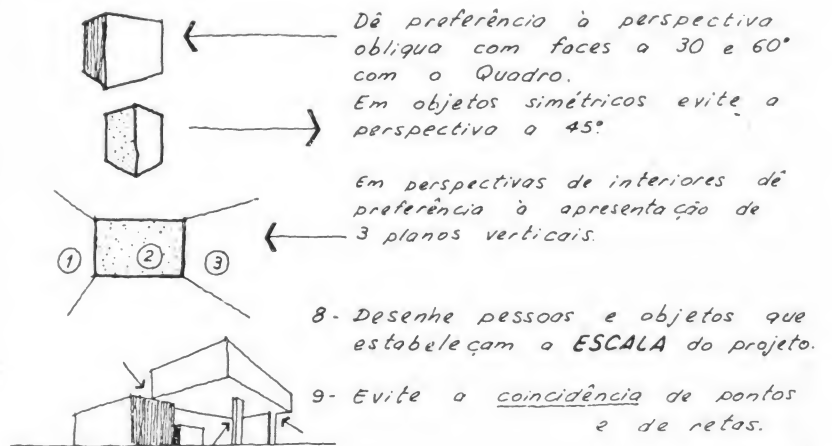 Dê preferência à perspectiva
obliqua com faces a 30 e 60°
com o Quadro.
Em objetos simétricos evite a
perspectiva a 45°.
Em perspectivas de interiores dê
preferência à apresentação de
3 planos verticais.
1 2 3
8- Desenhe pessoas e objetos que
estabeleçam a ESCALA do projeto.
9- Evite a coincidência de pontos
e de retas.